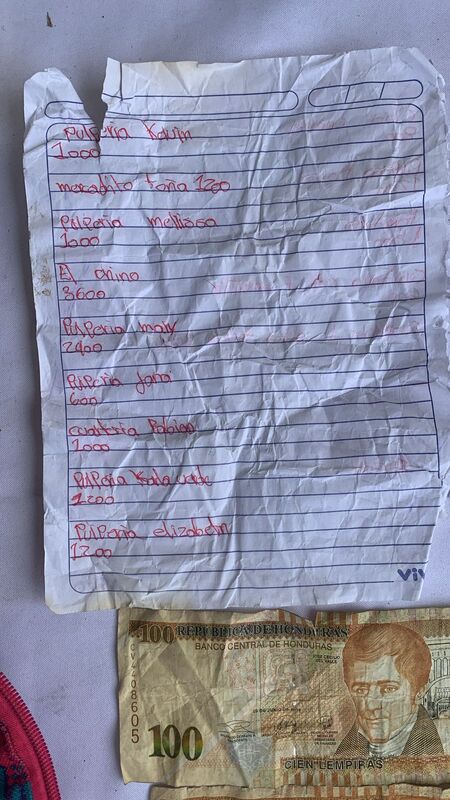 Pulperia Kevin
1000
mercadito toña 1200
Pulperia mellissa
1000
El chino
3600
Pulperia maly
2400
Pulperia
600
cuarteria Fabian
1000
Pulperia Kata
1200
Pulperia elizabeth
1200
ViV
100 REPUBLICA DE HONDURAS
BANCO CENTRAL DE HONDURAS
CV4408605
100
CIEN LEMPIRAS